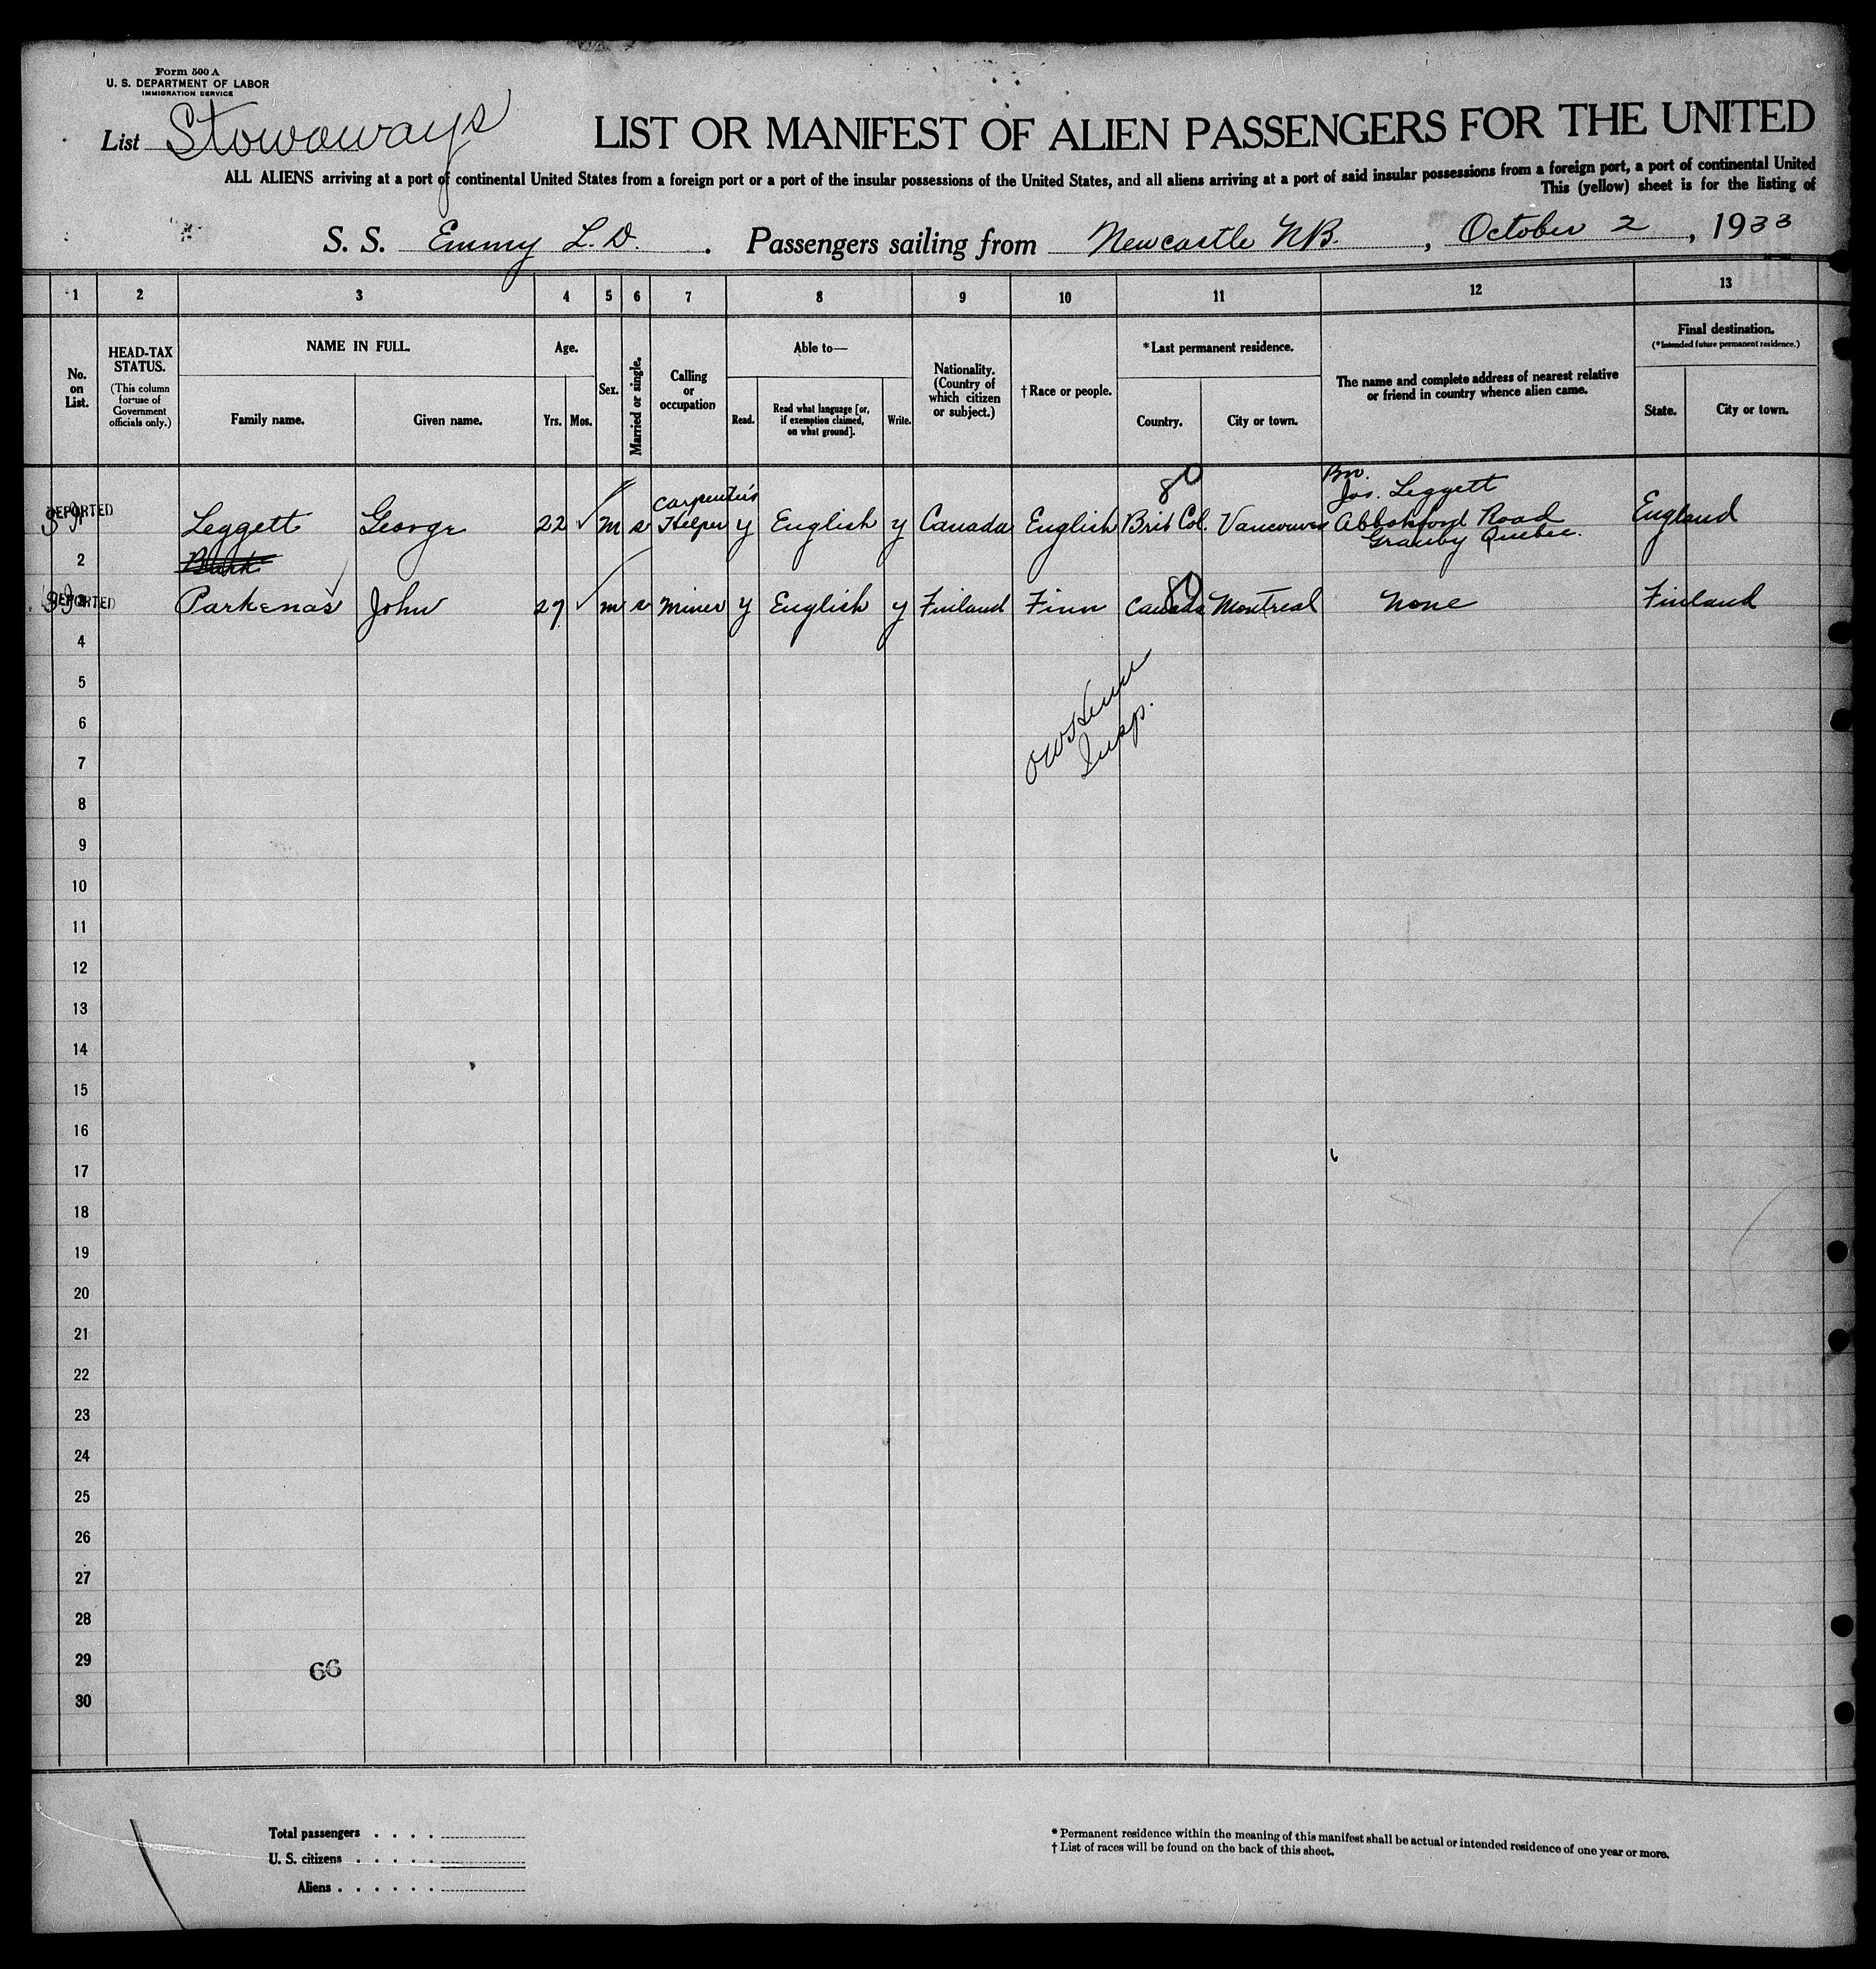 Form 500 A
U. S. DEPARTMENT OF LABOR
IMMIGRATION SERVICE
List Stowaways
LIST OR MANIFEST OF ALIEN PASSENGERS FOR THE UNITED
ALL ALIENS arriving at a port of continental United States from a foreign port or a port of the insular possessions of the United States, and all aliens arriving at a port of said insular possessions from a foreign port, a port of continental United
This (yellow) sheet is for the listing of
S. S. Emmy L. D. . Passengers sailing from Newcastle N.B. , October 2 , 1933
1 2 3 4 5 6 7 8 9 10 11 12 13
No. on List.
HEAD-TAX STATUS.
(This column for use of Government officials only.)
NAME IN FULL.
Family name. Given name.
Age.
Yrs. Mos.
Sex.
Married or single.
Calling or occupation
Able to—
Read. Read what language [or, if exemption claimed, on what ground]. Write.
Nationality. (Country of which citizen or subject.)
† Race or people.
*Last permanent residence.
Country. City or town.
The name and complete address of nearest relative or friend in country whence alien came.
Final destination.
(*Intended future permanent residence.)
State. City or town.
DEPORTED Leggett George 22 m s Carpenter's Helper y English y Canada English Brit Col. Vancouver
80
Bro.
Jos. Leggett
Abbotsford Road
Granby Quebec.
England
2
DEPORTED Parkenas John 27 m s Miner y English y Finland Finn Canada Montreal None Finland
80
4
5
6
Insp.
7
8
9
10
11
12
13
14
15
16
17
18
19
20
21
22
23
24
25
26
27
28
29
66
30
Total passengers . . . .
U. S. citizens . . . . .
Aliens . . . . . .
* Permanent residence within the meaning of this manifest shall be actual or intended residence of one year or more.
† List of races will be found on the back of this sheet.